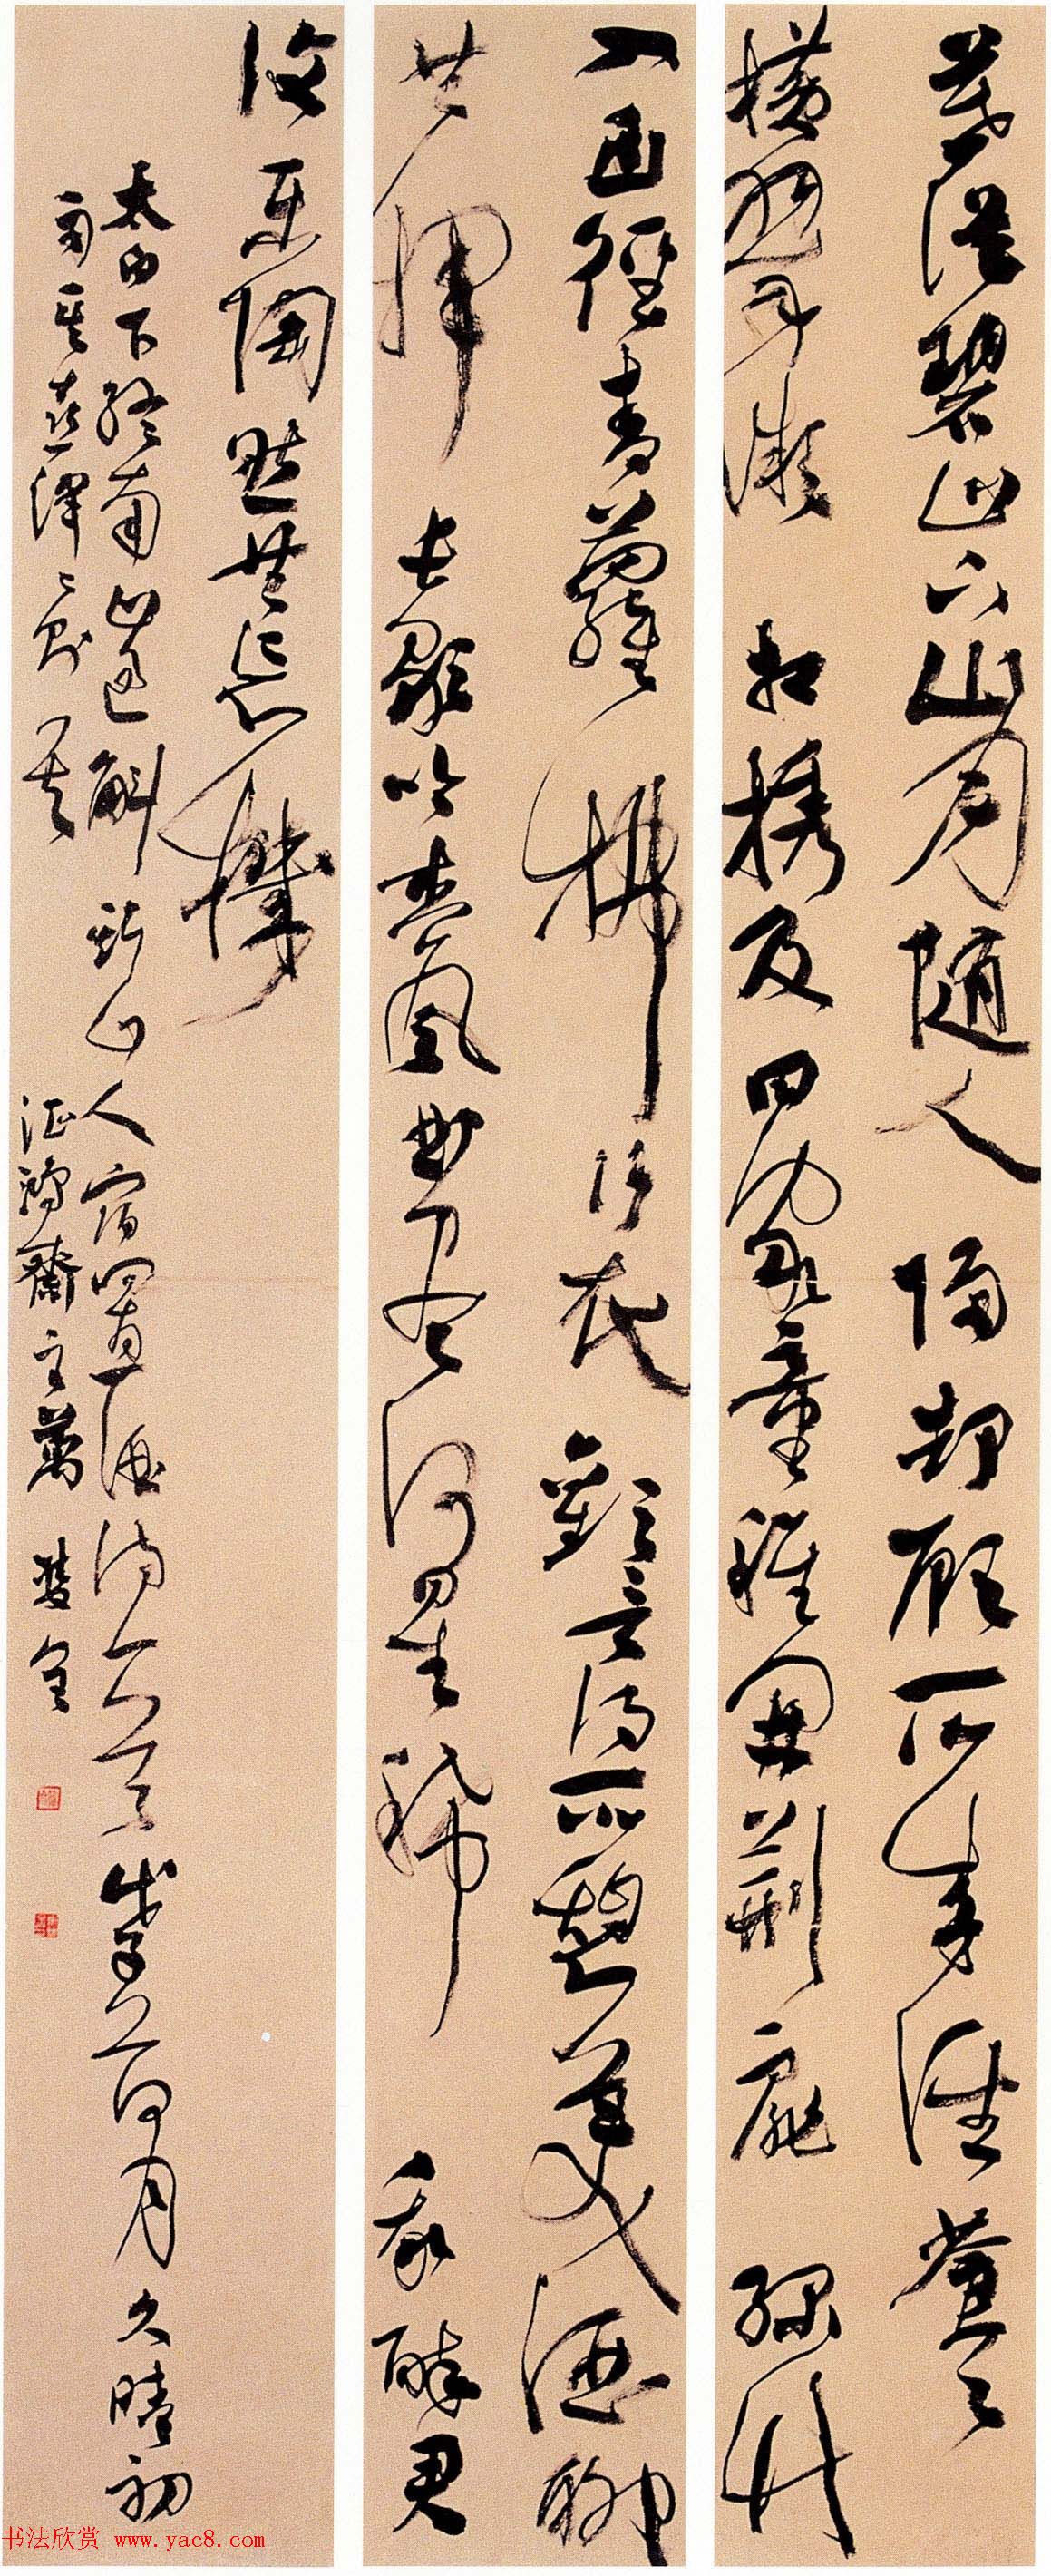 暮從碧山下山月隨人歸却顧所来徑蒼蒼
橫翠微相攜及田家童稚開荊扉綠竹
入幽徑青蘿拂行衣歡言得所憩美酒聊
共揮長歌吟松風曲盡河星稀我醉君
復樂陶然共忘機
太白下終南山過斛斯山人宿置酒詩一首戊子荷月久晴初
雨
齋主萬
书法欣赏 www.yac8.com